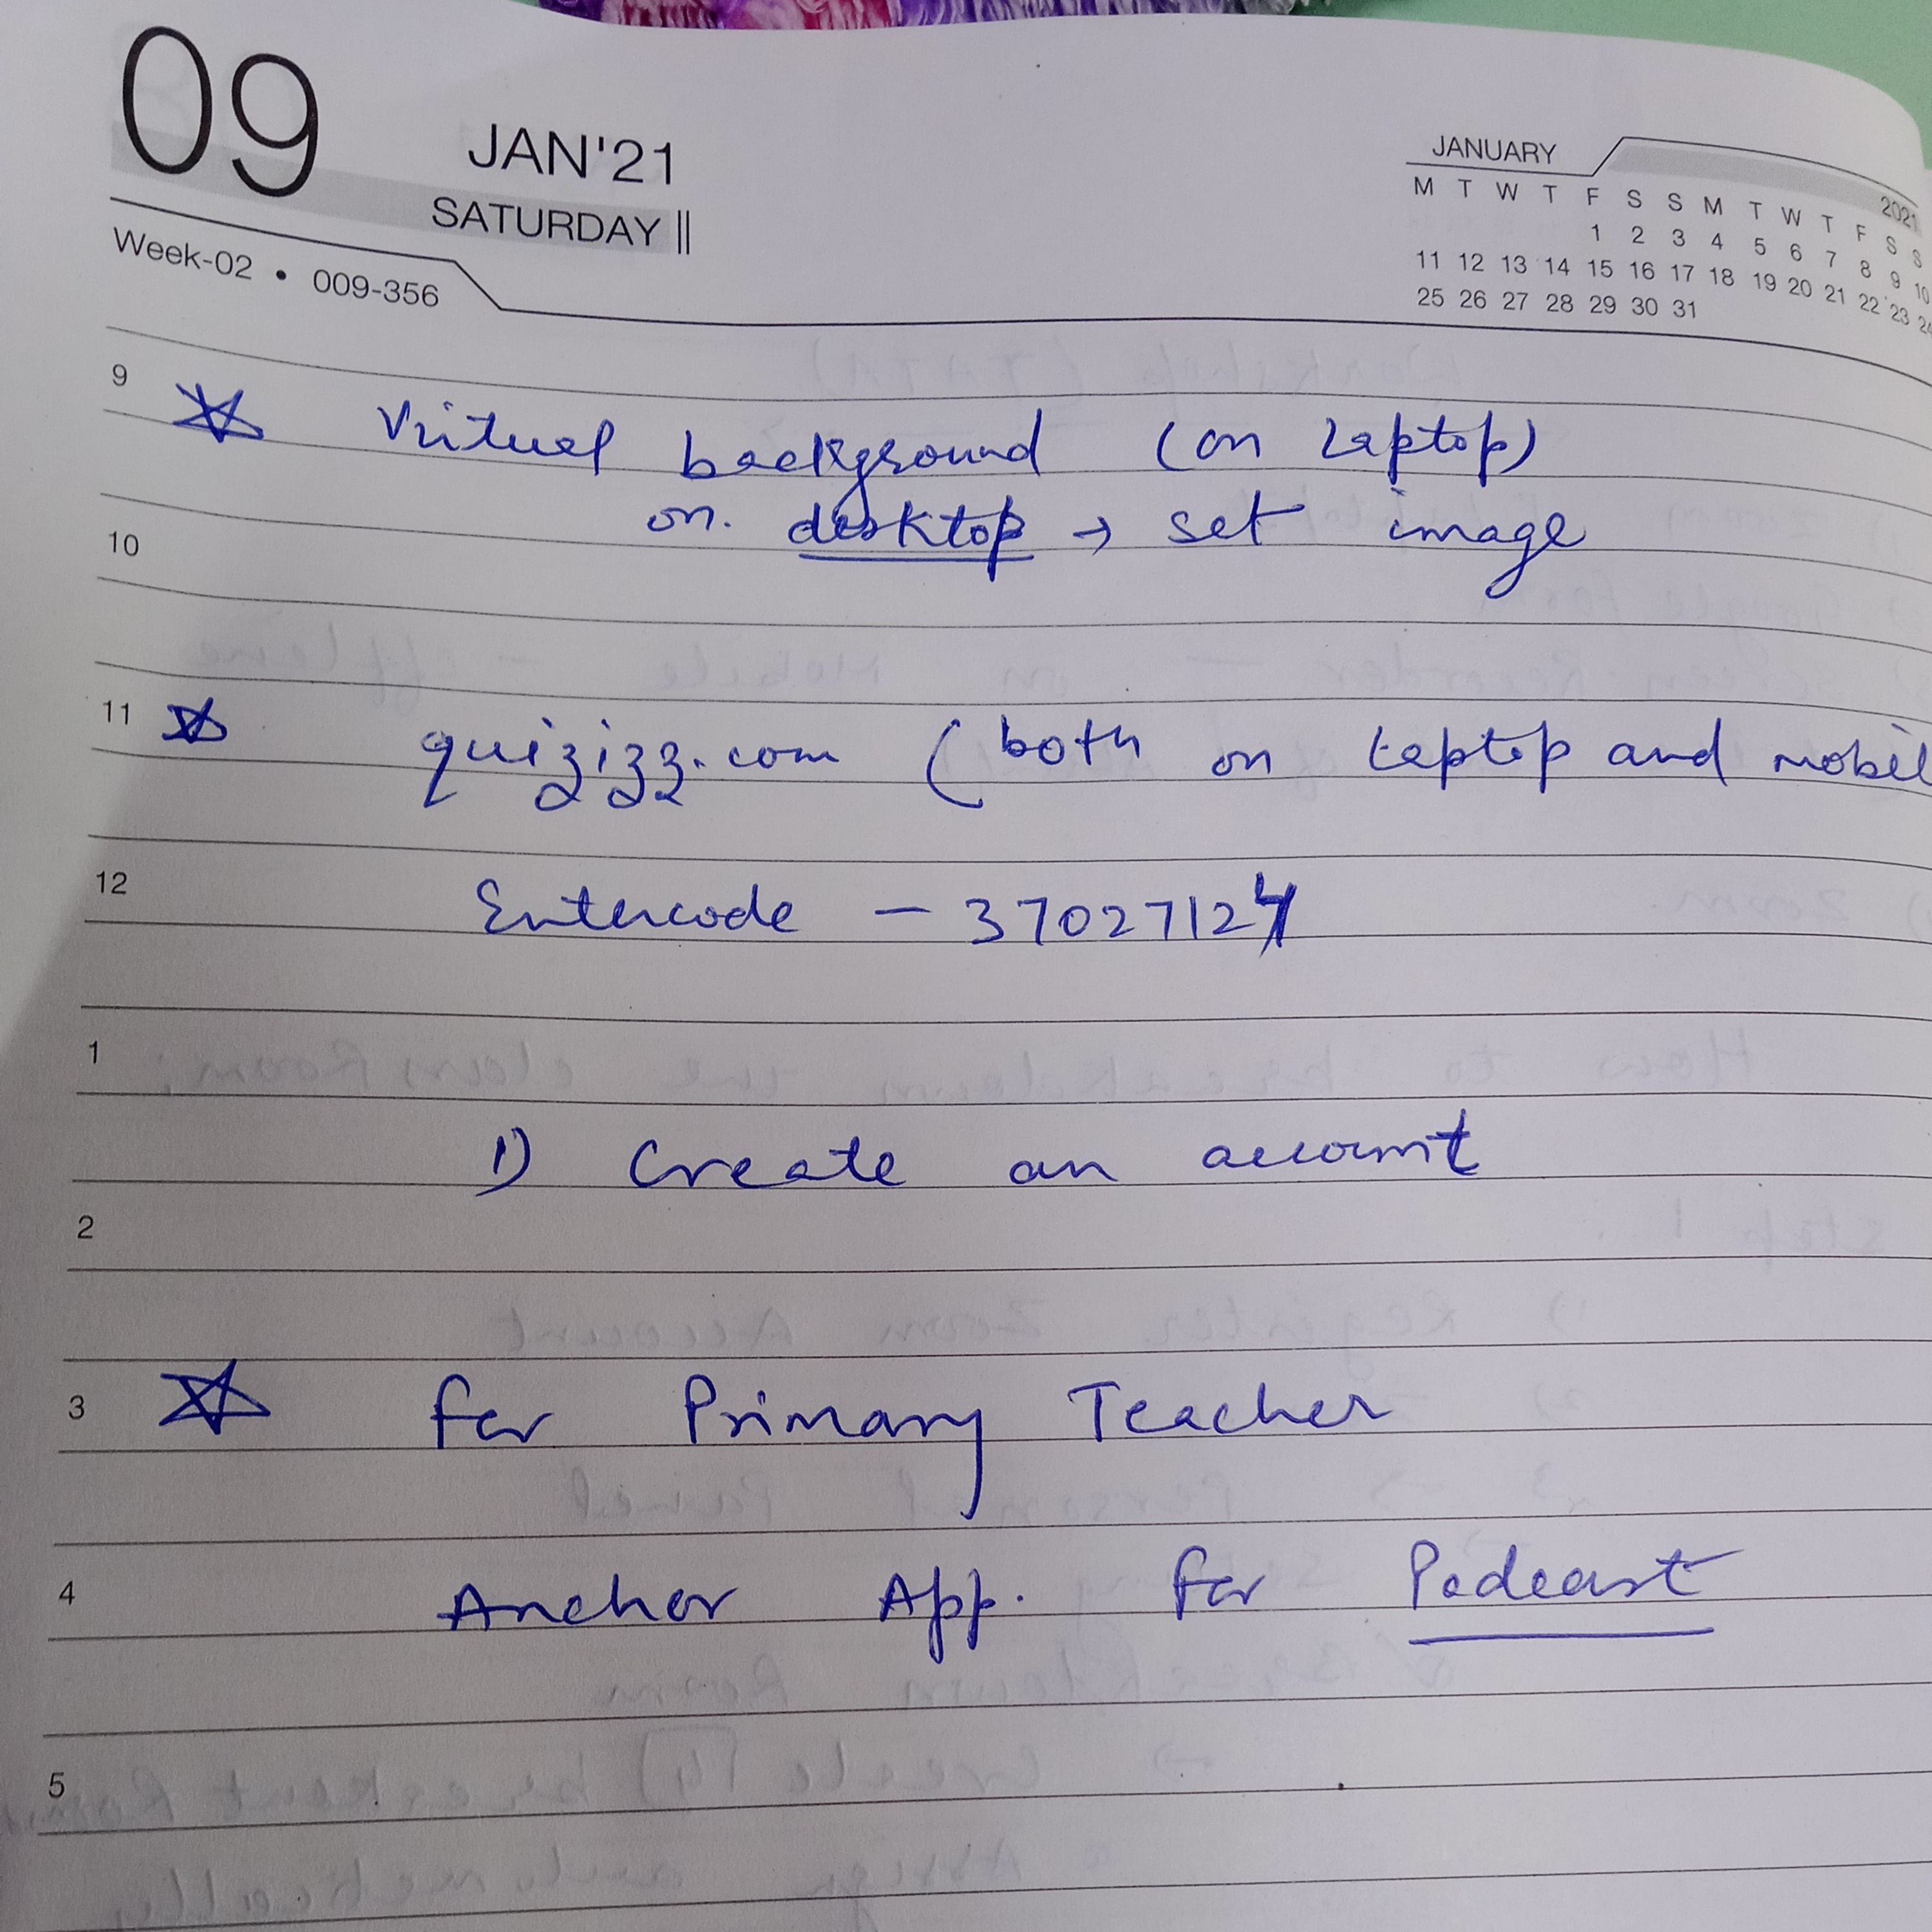 09
JAN'21
SATURDAY
Week-02 • 009-356
JANUARY
2021
M T W T F S S M T W T F S S
1 2 3 4 5 6 7 8 9 10
11 12 13 14 15 16 17 18 19 20 21 22 23 24
25 26 27 28 29 30 31
9
Virtual background (on Laptop)
on. desktop → set image
10
11
quizizz.com (both on Laptop and mobil
12
Entercode - 3702712
1
1) Create an account
2
3
for Primary Teacher
4
Anchor App. for Podcast
5